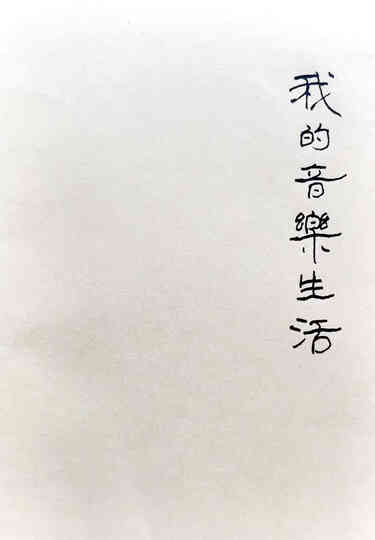 我的音樂生活